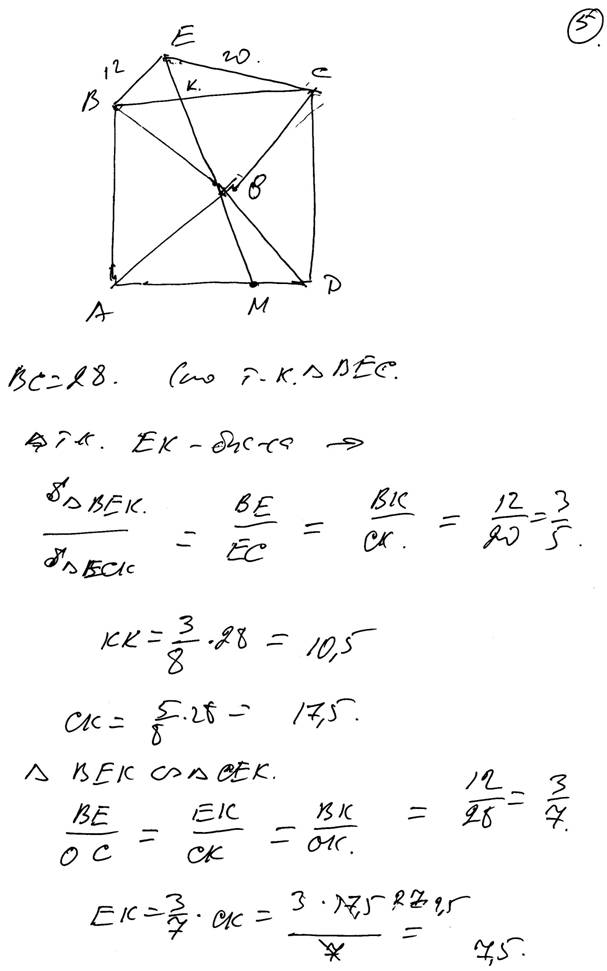 5
E
12
20.
C
B
K.
O
A
M
D
BC=28. т-к. △ BEC.
т.к. EK - бис-са →
S△BEK. / S△ECK = BE / EC = BK / CK. = 12 / 20 = 3 / 5.
KK = 3/8 · 28 = 10,5
CK = 5/8 · 28 = 17,5.
△ BEK ∽ △ CEK.
BE / OC = EK / CK = BK / OK. = 12 / 28 = 3 / 7.
EK = 3/7 · CK = 3 · 17,5 / 7 = 7,5.